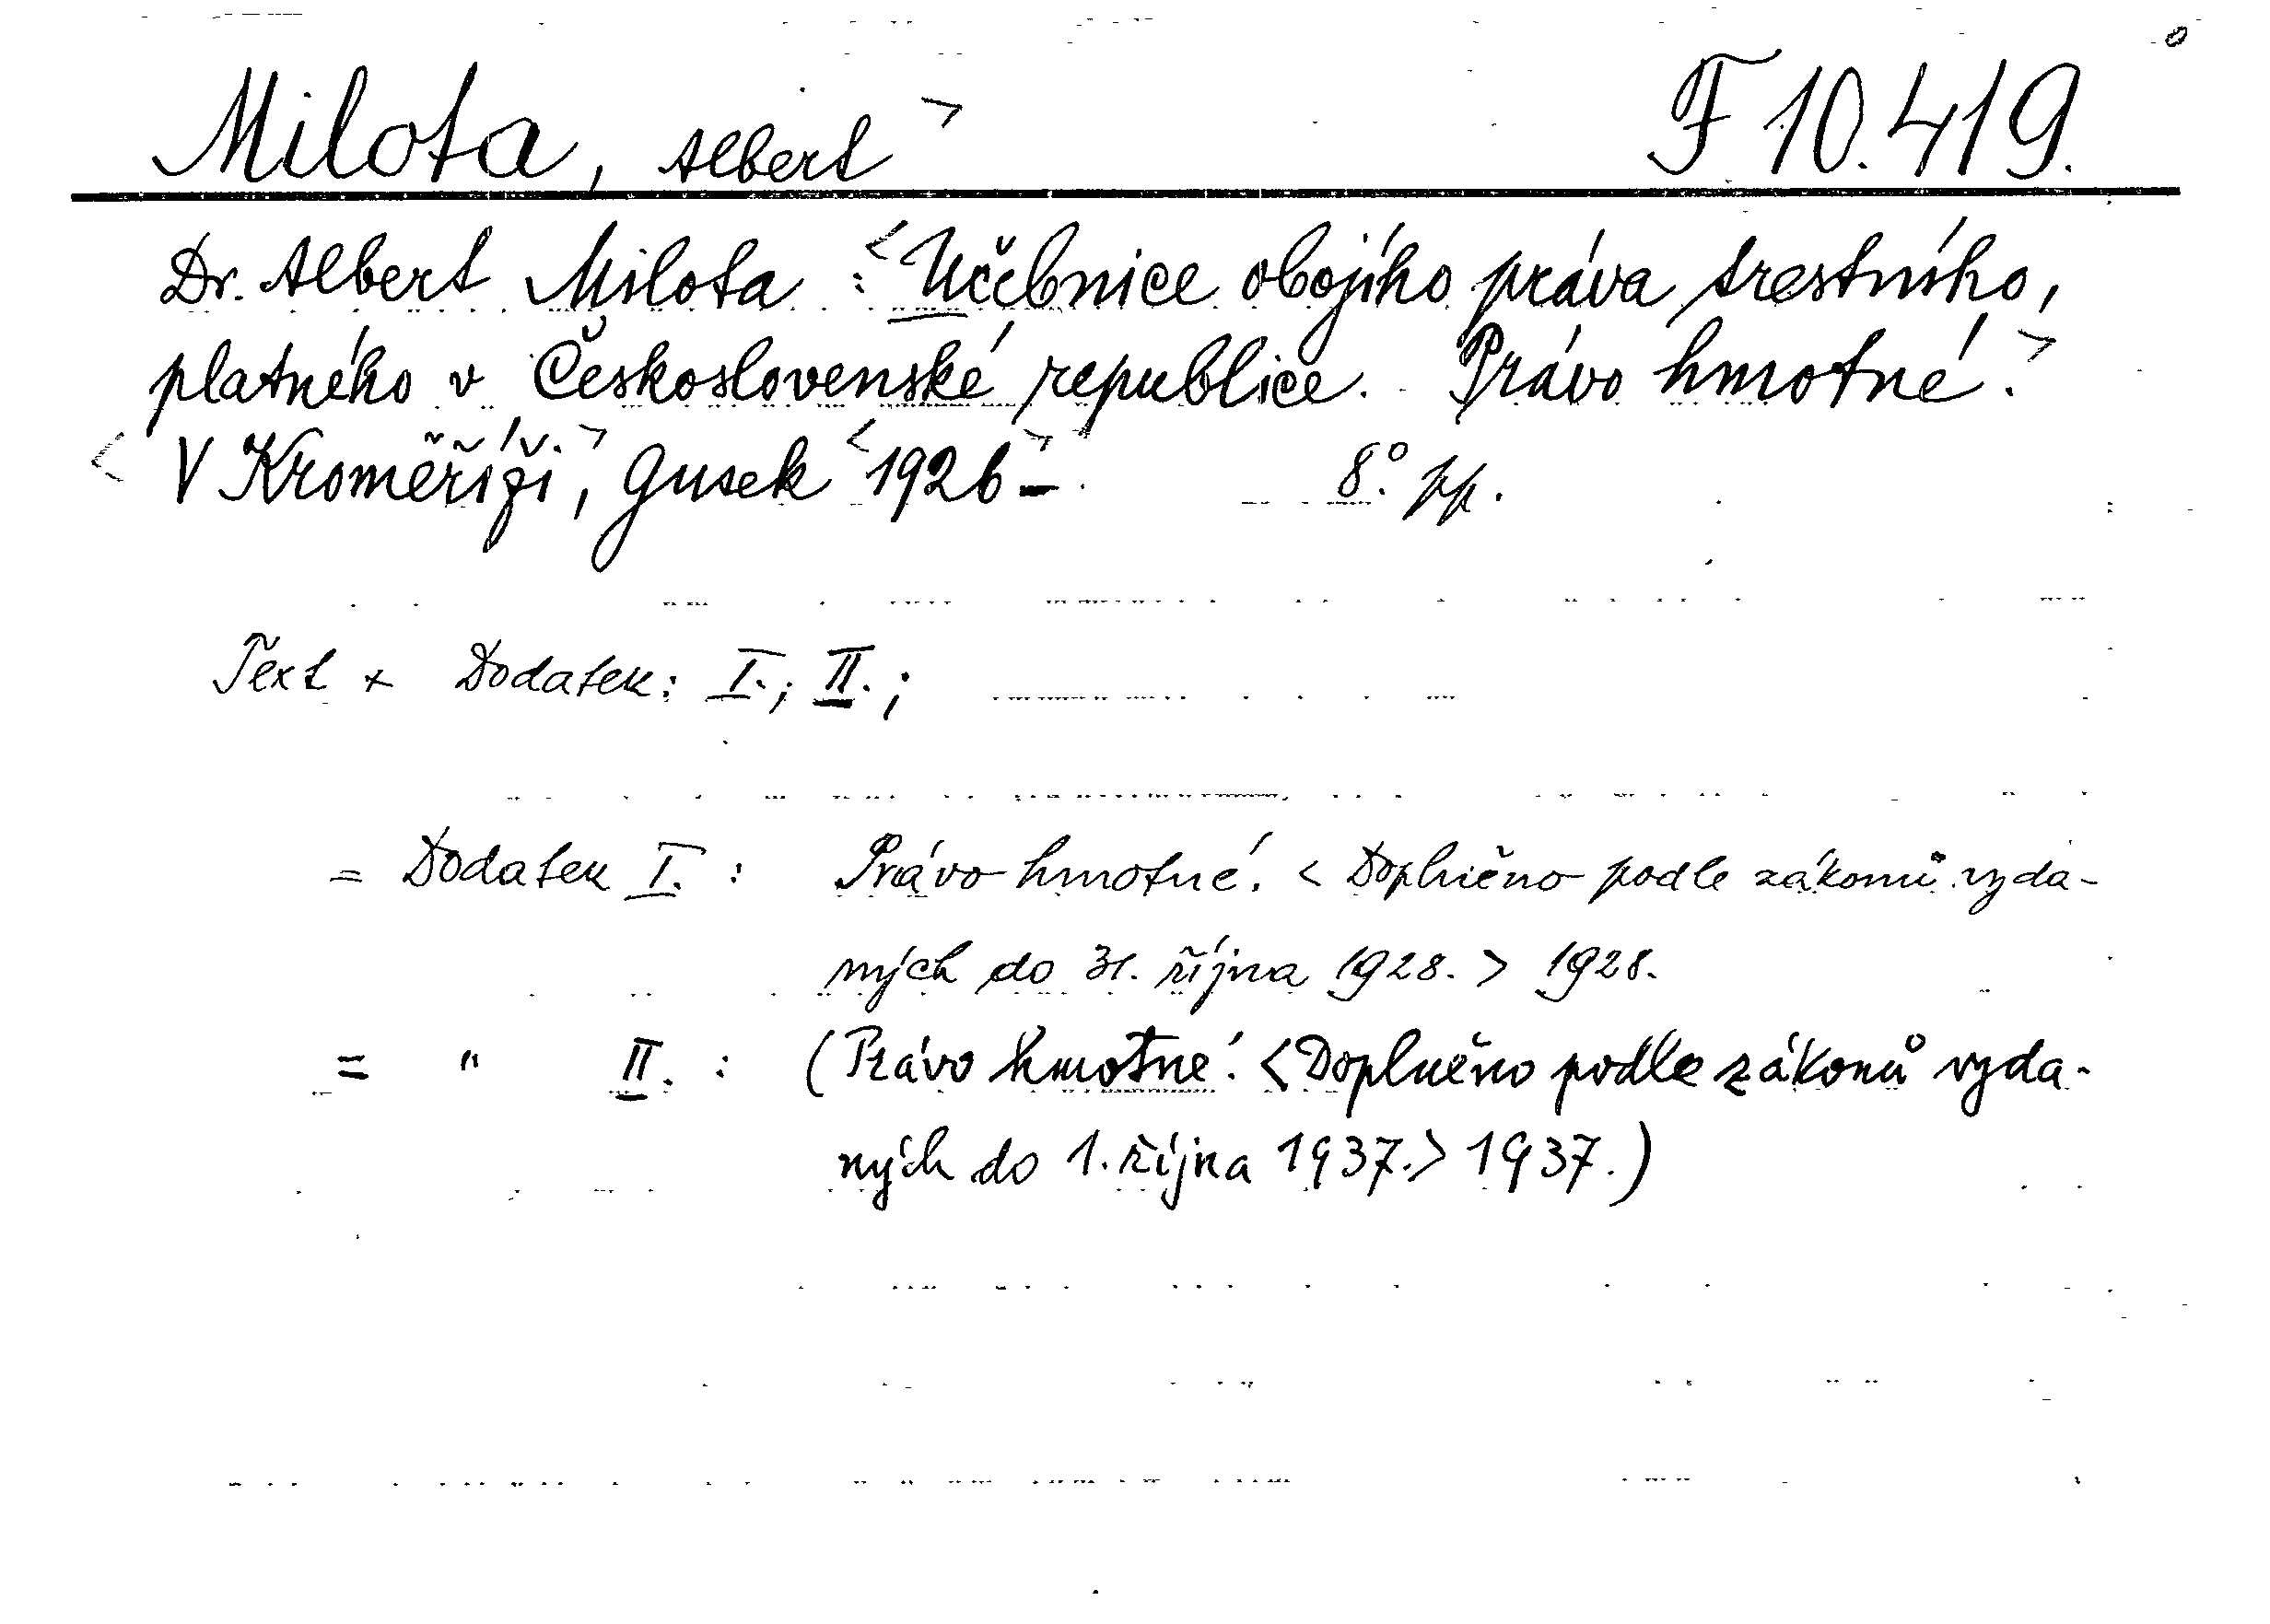 Milota, Albert > F 10.419.
Dr. Albert Milota : < Učebnice obojího práva trestního,
platného v Československé republice. Právo hmotné. >
< V Kroměříži, > Gusek < 1926 - > 8° pp.
Text + Dodatek: I.; II.;
= Dodatek I. : Právo hmotné. < Doplněno podle zákonů vyda-
ných do 31. října 1928. > 1928.
= " II. : (Právo hmotné. < Doplněno podle zákonů vyda-
ných do 1. října 1937. > 1937.)